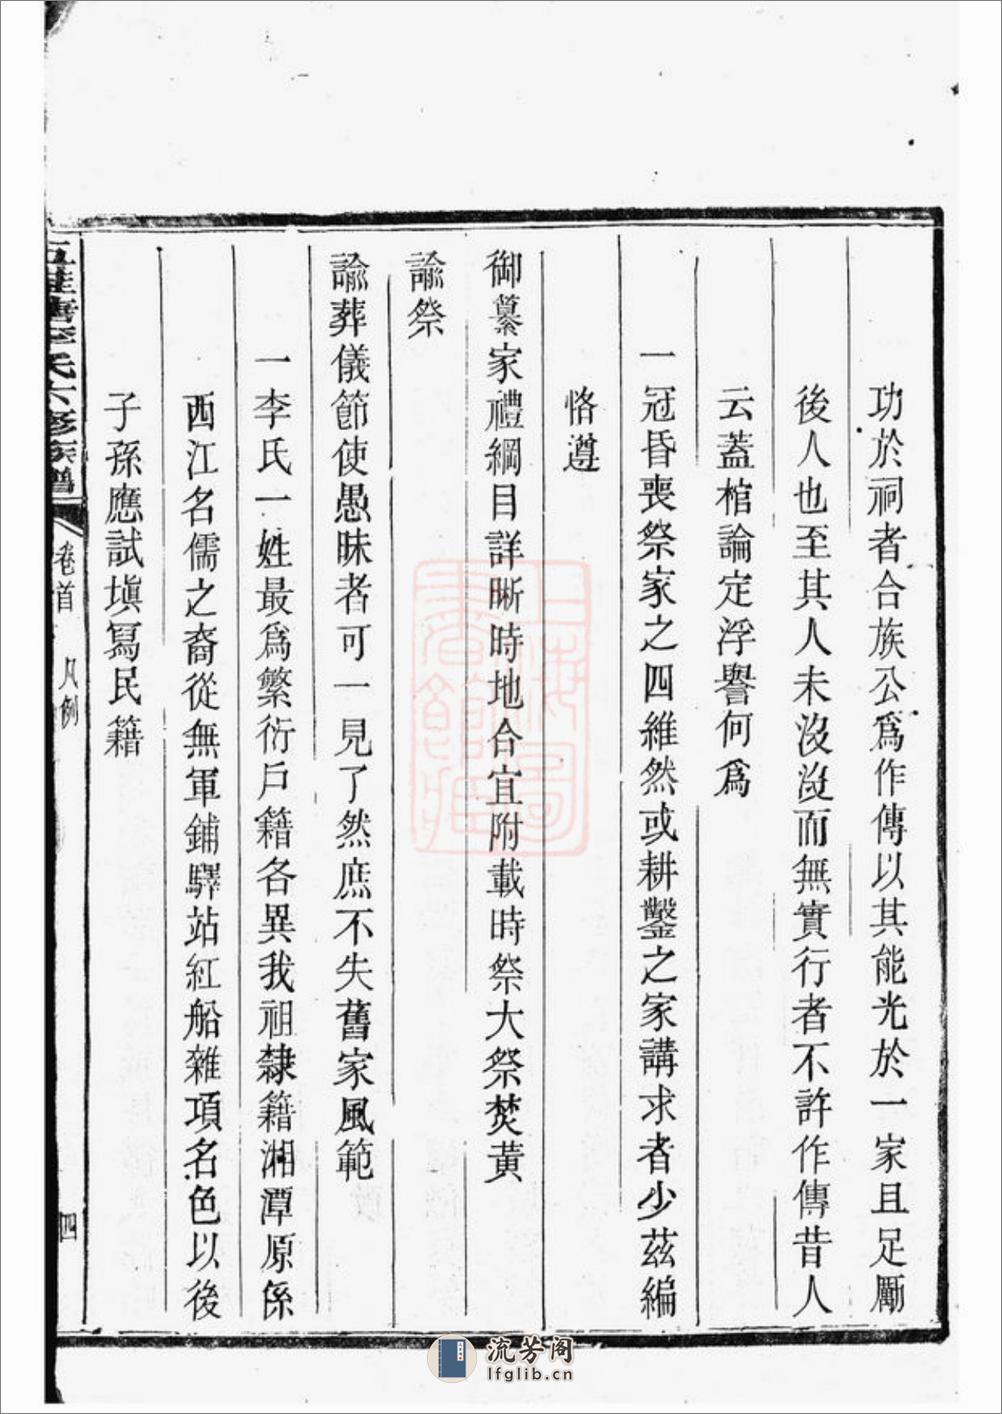 功於祠者合族公爲作傳以其能光於一家且足勵
後人也至其人未沒沒而無實行者不許作傳昔人
云蓋棺論定浮譽何爲
一冠昏喪祭家之四維然或耕鑿之家講求者少茲編
恪遵
御纂家禮綱目詳晰時地合宜附載時祭大祭焚黃
諭祭
諭葬儀節使愚昧者可一見了然庶不失舊家風範
一李氏一姓最爲繁衍戶籍各異我祖隸籍湘潭原係
西江名儒之裔從無軍鋪驛站紅船雜項名色以後
子孫應試塡冩民籍
五桂塘李氏六修族譜
卷首
凡例
四
上海圖書館藏
流芳阁
lfglib.cn